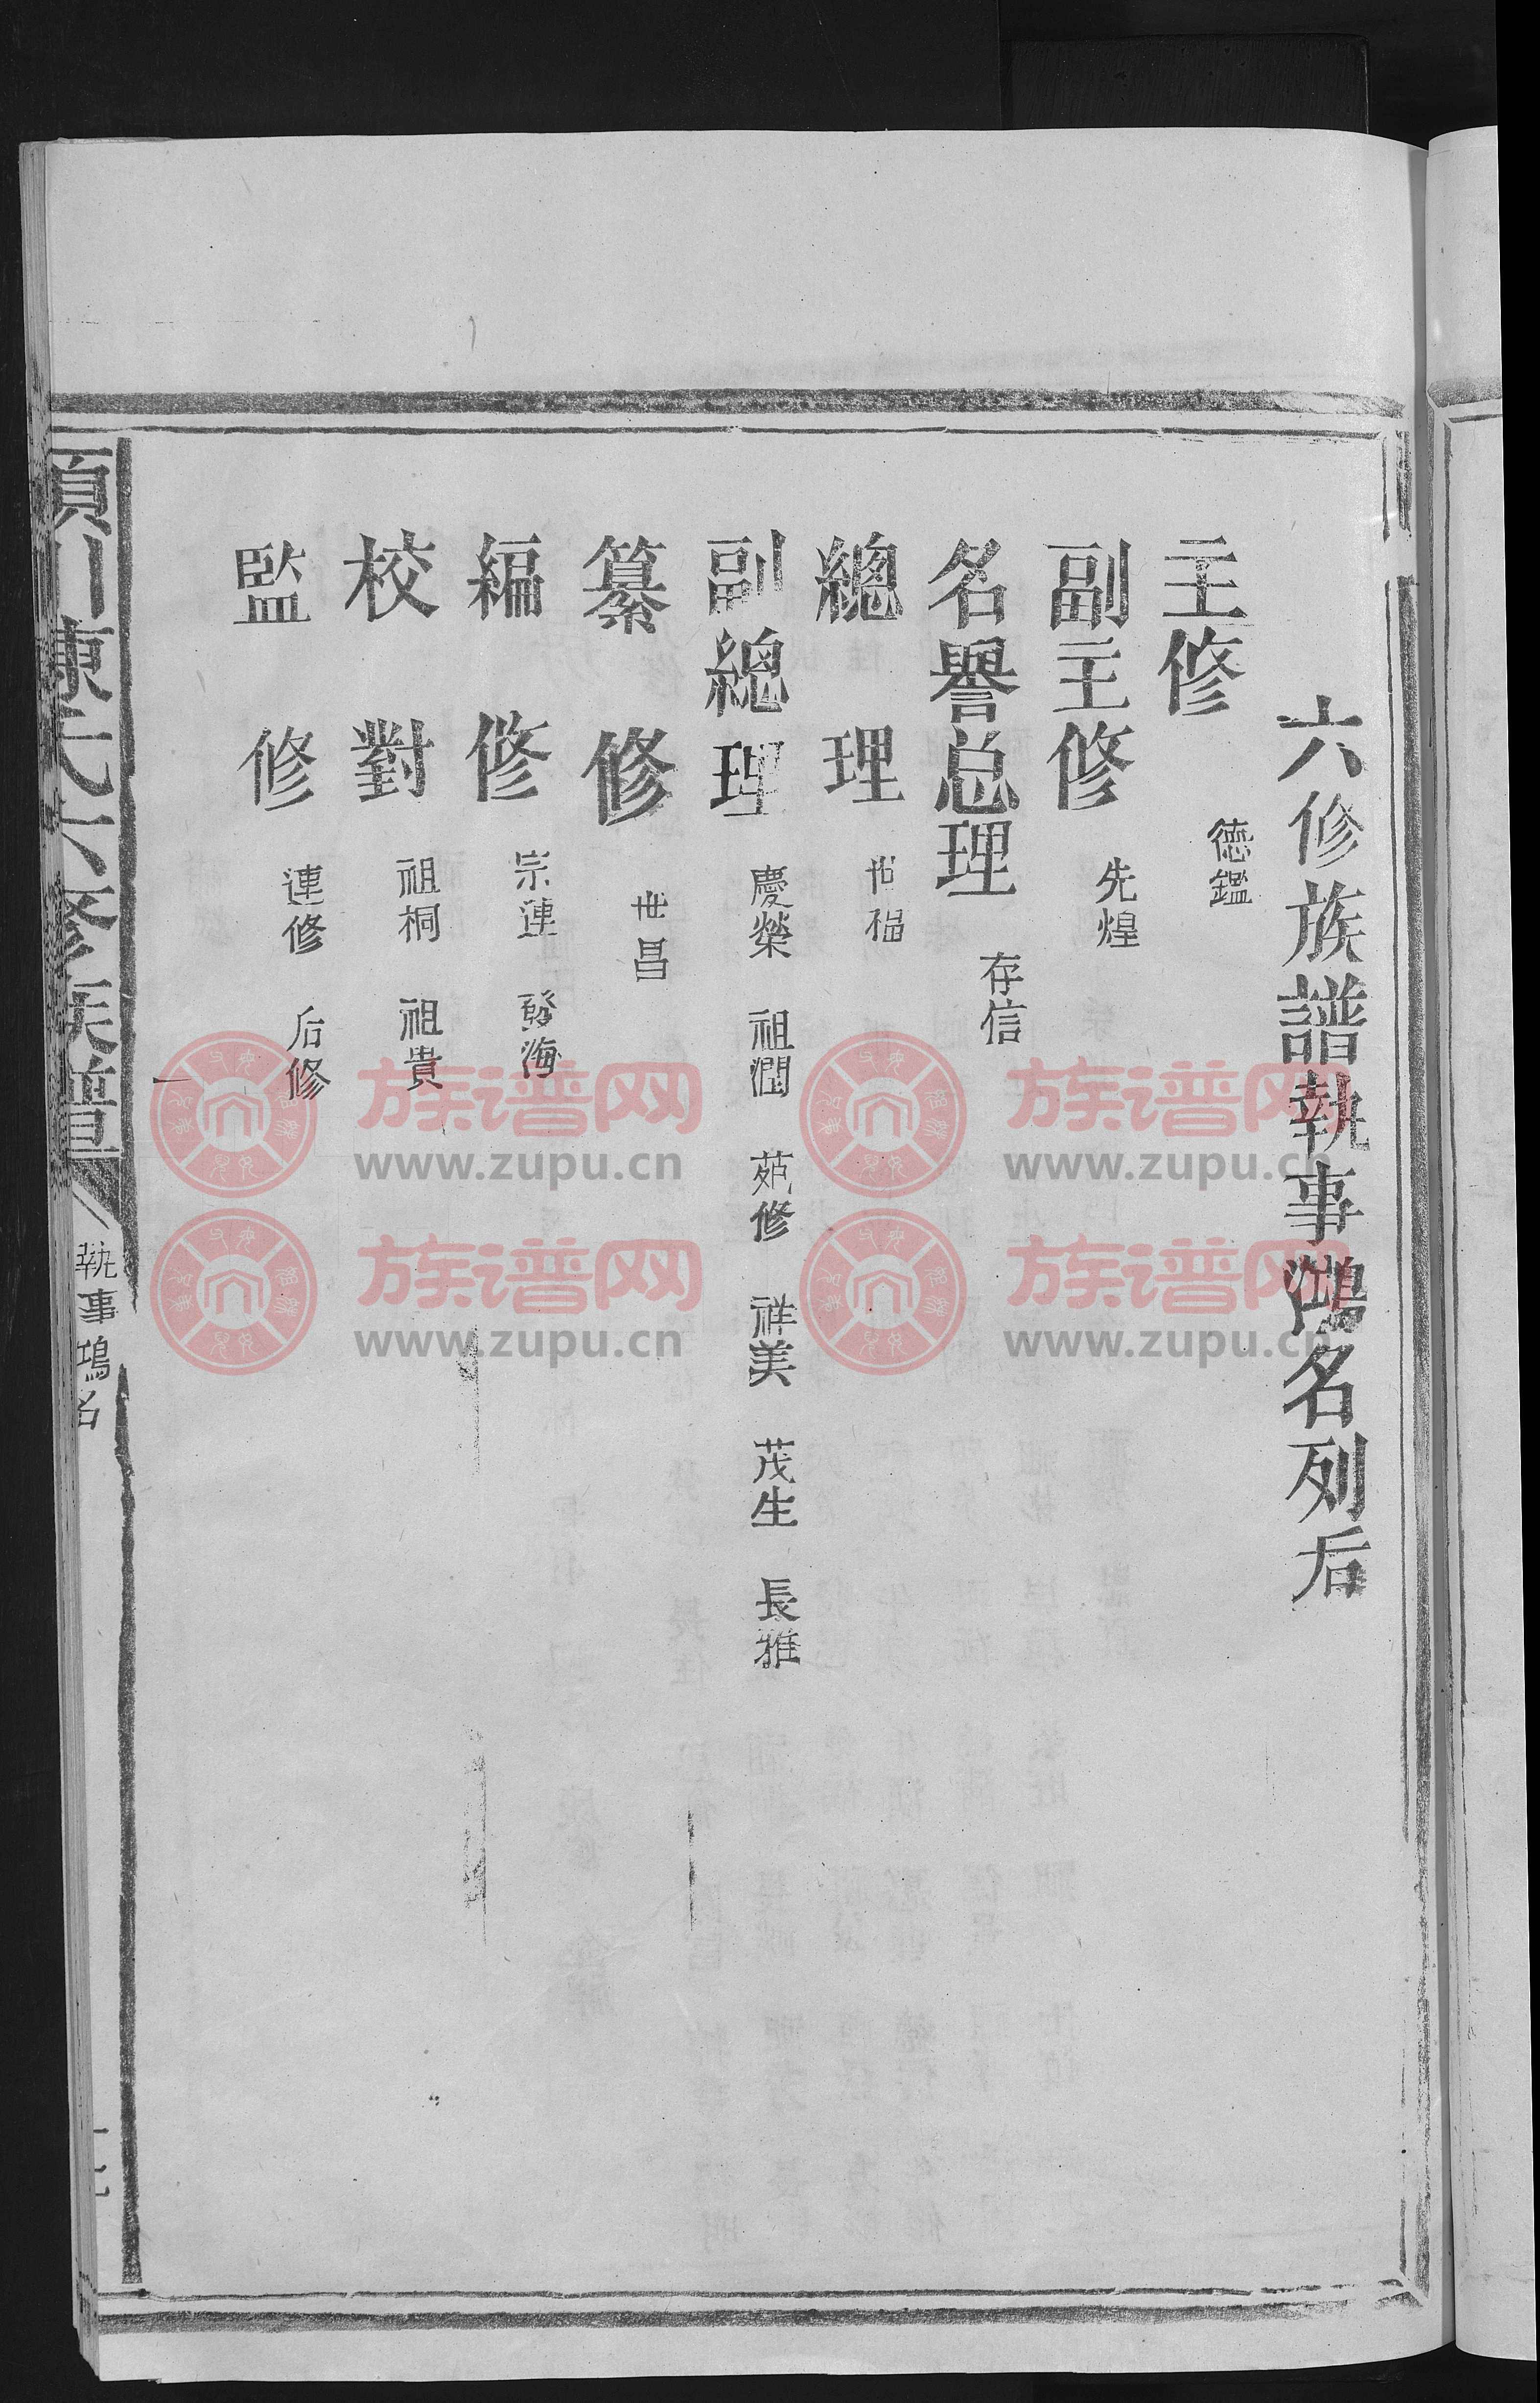 六修族譜執事鴻名列后
主修 德鑑
副主修 先煌
名譽总理 存信
總理 世福
副總理 慶榮 祖潤 苑修 祥美 茂生 長雅
纂修 世昌
編修 宗蓮 發海
校對 祖桐 祖貴
監修 連修 后修
川康氏六修族譜
執事鴻名
族谱网
www.zupu.cn
族谱网
www.zupu.cn
族谱网
www.zupu.cn
族谱网
www.zupu.cn